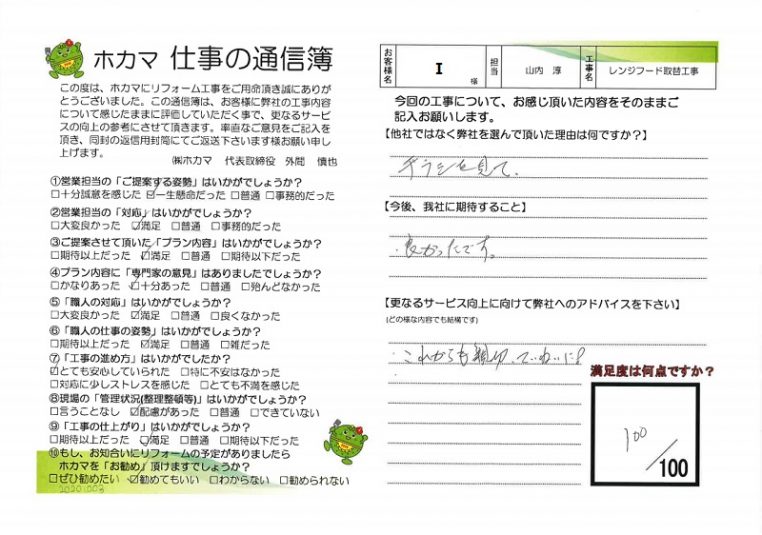 ホカマ 仕事の通信簿
この度は、ホカマにリフォーム工事をご用命頂き誠にありが
とうございました。この通信簿は、お客様に弊社の工事内容
について感じたままに評価していただく事で、更なるサービ
スの向上の参考にさせて頂きます。率直なご意見をご記入を
頂き、同封の返信用封筒にてご返送下さいます様お願い申し
上げます。
㈱ホカマ 代表取締役 外間 慎也
①営業担当の「ご提案する姿勢」はいかがでしょうか?
□十分誠意を感じた ☑一生懸命だった □普通 □事務的だった
②営業担当の「対応」はいかがでしょうか?
□大変良かった ☑満足 □普通 □事務的だった
③ご提案させて頂いた「プラン内容」はいかがでしょうか?
□期待以上だった ☑満足 □普通 □期待以下だった
④プラン内容に「専門家の意見」はありましたでしょうか?
□かなりあった ☑十分あった □普通 □殆んどなかった
⑤「職人の対応」はいかがでしょうか?
□大変良かった ☑満足 □普通 □良くなかった
⑥「職人の仕事の姿勢」はいかがでしょうか?
□期待以上だった ☑満足 □普通 □雑だった
⑦「工事の進め方」はいかがでしたか?
☑とても安心していられた □特に不安はなかった
□対応に少しストレスを感じた □とても不満を感じた
⑧現場の「管理状況(整理整頓等)」はいかがでしょうか?
□言うことなし ☑配慮があった □普通 □できていない
⑨「工事の仕上がり」はいかがでしょうか?
□期待以上だった ☑満足 □普通 □期待以下だった
⑩もし、お知合いにリフォームの予定がありましたら
ホカマを「お勧め」頂けますでしょうか?
□ぜひ勧めたい ☑勧めてもいい □わからない □勧められない
20201003
お客様名 I 様 担当 山内 淳 工事名 レンジフード取替工事
今回の工事について、お感じ頂いた内容をそのままご
記入お願いします。
【他社ではなく弊社を選んで頂いた理由は何ですか?】
チラシを見て、
【今後、我社に期待すること】
良かったです。
【更なるサービス向上に向けて弊社へのアドバイスを下さい】
(どの様な内容でも結構です)
これからも親切、ていねいに!
満足度は何点ですか?
100/100